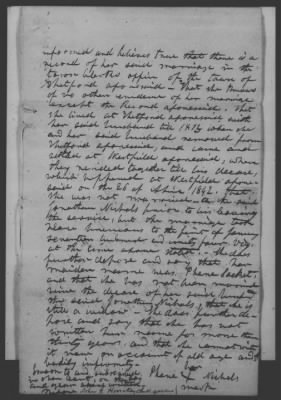 informed and believes true that there is a
record of her said marriage in the
town clerks office of the town of
Thetford aforesaid - that she knows
of no other evidence of her marriage
except the Record aforesaid - that
she lived at Thetford aforesaid with
her said husband till 1812 when she
and her said husband removed from
Thetford aforesaid, and came and
settled at Westfield aforesaid, where
they resided together till his decease,
which happened at Westfield afore-
said on the 28 of
she was not married to the said
Jonathan Nichols prior to his leaving
the service, but the marriage took
place previous to the first of January
seventeen hundred and ninety four viz.
at the time above stated - She does
further depose and say that her
maiden name was Phene
and that she has not been married
since the decease of her said husband
the said Jonathan Nichols, that she is
still a widow - She does further de-
pose and say that she has not
written her name for more than
thirty years, and that she cannot write
it now on account of old age and
bodily infirmity.
her
Phene X Nichols
mark
sworn to and subscribed